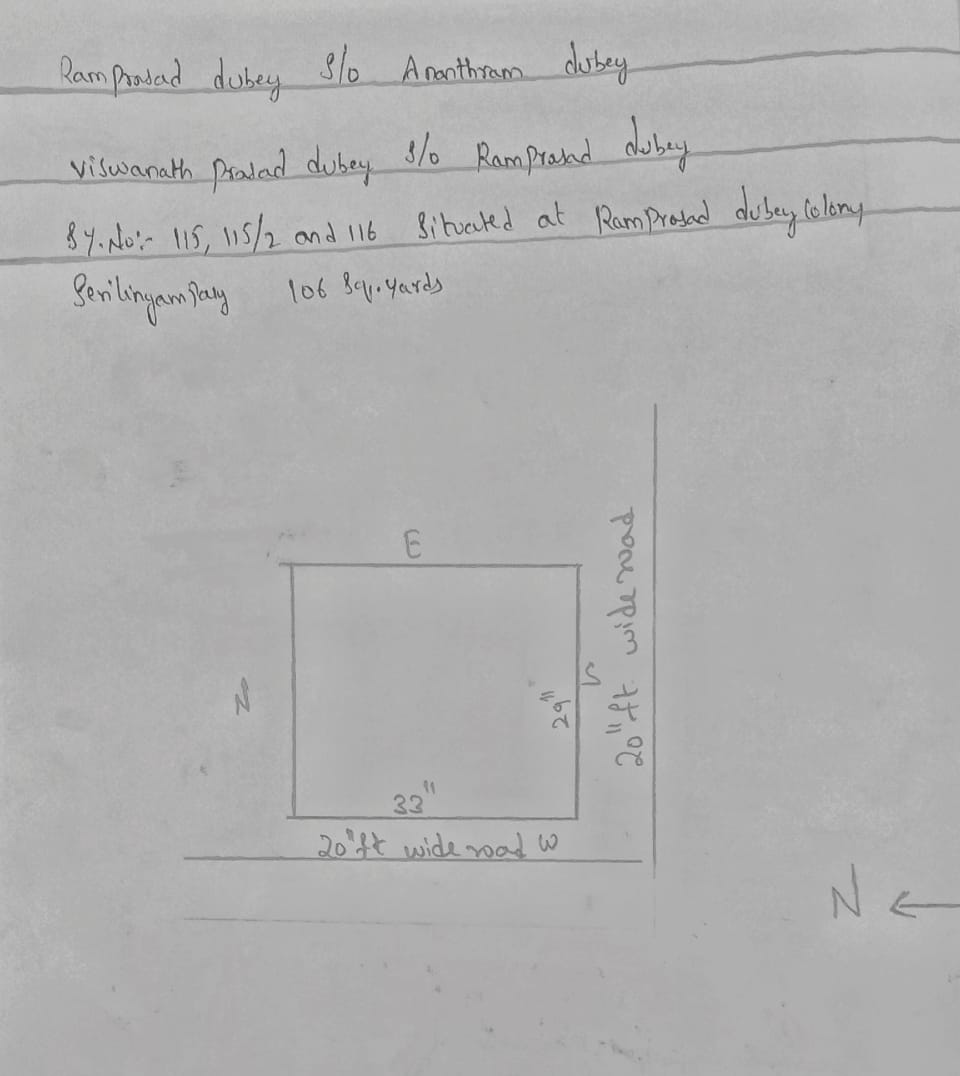 RamPrasad dubey S/o Ananthram dubey
Viswanath Prasad dubey S/o RamPrasad dubey
Sy.No:- 115, 115/2 and 116 Situated at RamPrasad dubey Colony
Serilingampally 106 Sq.yards
E
20"ft wide road
N
S
29"
33"
20"ft wide road W
N ←